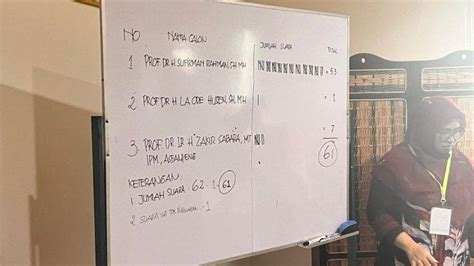 NO NAMA CALON JUMLAH SUARA
1 PROF. DR. H. SUFIRMAN RAHMAN, SH. MH = 53
2 PROF. DR. H. LA ODE HUSEN, SH. M.H = 1
3. PROF. DR. IR. H. ZAKIR SABARA, MT = 7
IPM, 61
KETERANGAN:
1. JUMLAH SUARA : 62 - 1 61
2 SUARA - 1